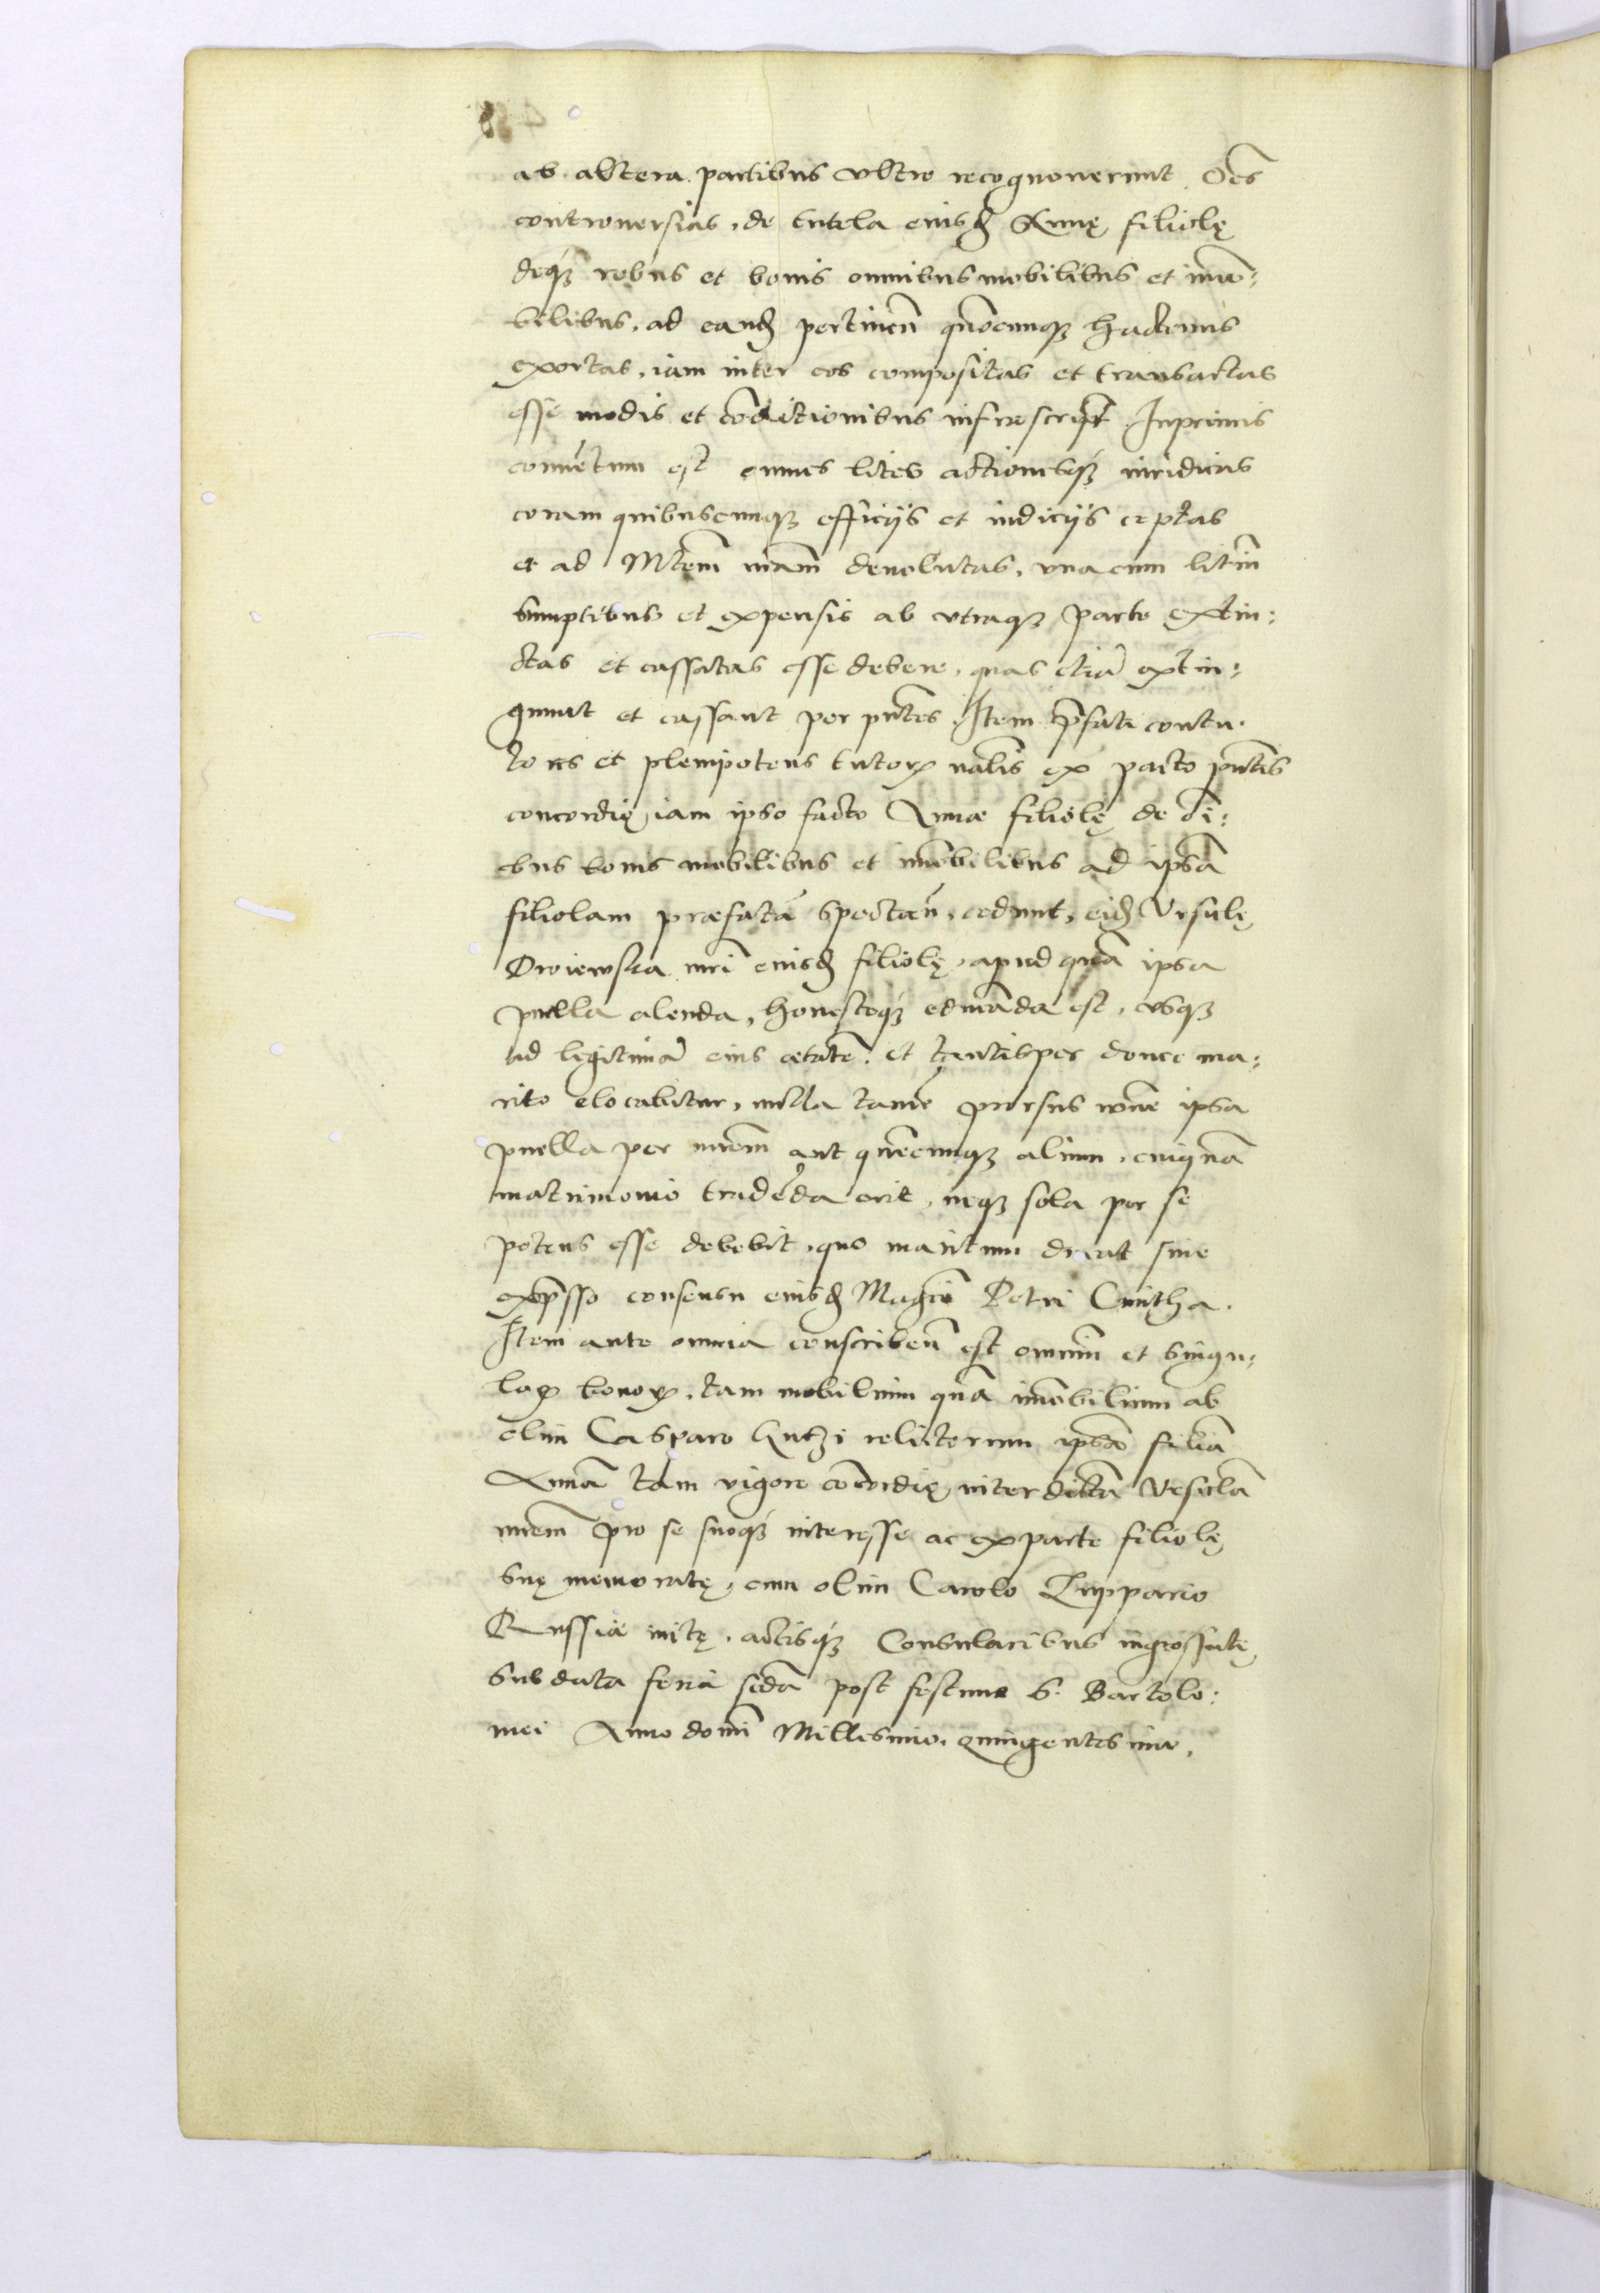 ab altera partibus ultro recognoverunt Oēs
controversias, de tutela eiusdē Annę filiolę
deq3 rebus et bonis omnibus mobilibus et imo:
bilibus, ad eandē pertineñ quōcunq3 hactenus
exortas, iam inter eos compositas et transactas
esse modis et cōditionibus infrascript̄ Inprimis
convētum est omnes lites actionesq3 iuridicas
coram quibuscunq3 officijs et iudicijs ceptas
et ad Mtēm nr̄am devolutas, una cum litiū
sumptibus et expensis ab utraq3 parte extin:
ctas et cassatas esse debere, quas etiā extin:
gunnt et cassant per pn̄tes. Item p̄fati contu.
tores et plenipotens tutorꝝ nālis ex pacto pn̄tis
concordię iam ipso facto Annæ filiolę de oī:
cbus bonis mobilibus et imōbilibus ad ipsā
filiolam præfatā spectań, cedunt, eidē Ursulę
Drojewska mr̄i eiusdē filiolę, apud quā ipsa
puella alenda, honesteq3 educāda est, usq3
ad legitimā eius ætatē. et tantisper donec ma:
rito elocabitur, nulla tamē prorsus rōne ipsa
puella per mr̄em aut quēcunq3 alium, cuiquā
matrimonio tradēda erit, neq3 sola per se
potens esse debebit, quo maritum ducat sine
exp̄sso consensu eiusdē Magc̄i Petri Cmitha.
Item ante omnia conscribeñ est omniū et singu:
laꝝ bonoꝝ, tam mobilium quā imōbilium ab
olim Casparo Gutzi relictorum ipsā filiā
Annā tam vigore cōcordię inter dictā Ursulā
mr̄em pro se suoq3 interesse ac ex parte filiolę
suę memoratę, cum olim Carolo
Russia initę, actisq3 Consularibus ingrossatę
sub data feria sedā post festum S. Bartolo:
mei Anno domī Millesimo, quingentesimo,